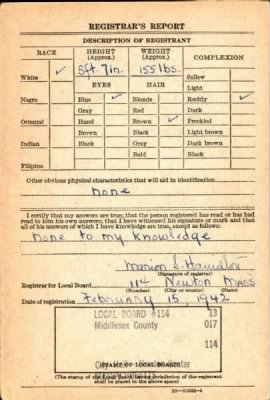 REGISTRAR'S REPORT
DESCRIPTION OF REGISTRANT
RACE HEIGHT (Approx.) WEIGHT (Approx.) COMPLEXION
White ✓ 5ft. 7in. 155 lbs. Sallow
EYES HAIR Light
Negro Blue ✓ Blonde Ruddy ✓
Gray Red Dark
Oriental Hazel Brown ✓ Freckled
Brown Black Light brown
Indian Black Gray Dark brown
Bald Black
Filipino
Other obvious physical characteristics that will aid in identification
None
I certify that my answers are true; that the person registered has read or has had
read to him his own answers; that I have witnessed his signature or mark and that
all of his answers of which I have knowledge are true, except as follows:
None to my knowledge
S. Hamilton
Registrar for Local Board 114 Newton MASS
(Number) (City or county) (State)
Date of registration February 15 1942
LOCAL BOARD #114 13
Middlesex County 017
114
Center
(STAMP OF LOCAL BOARD)
(The stamp of the Local Board having jurisdiction of the registrant
shall be placed in the above space)